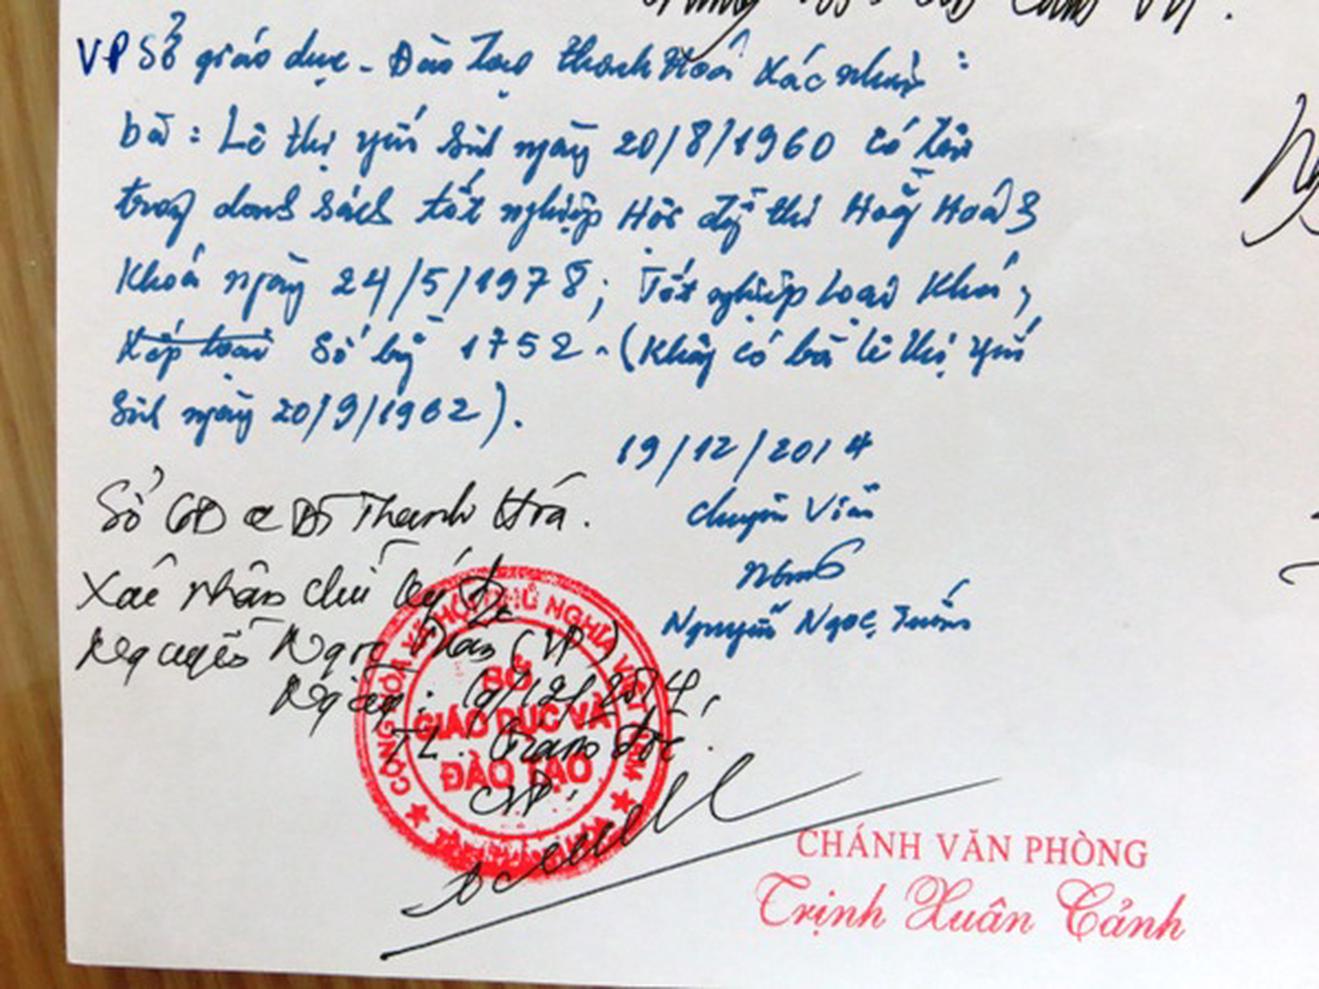 VP Sở giáo dục - Đào tạo Thanh Hoá xác nhận :
bà : Lê thị Yến sinh ngày 20/8/1960 có tên
trong danh sách tốt nghiệp Hội đồng thi Hoằng Hoá 3
Khoá ngày 24/5/1978 ; Tốt nghiệp loại Khá ,
Xếp loại Số bằng 1752 . (Không có bà Lê thị Yến
sinh ngày 20/9/1962 ) .
19/12/2014
Chuyên Viên
Nguyễn Ngọc Tuấn
Sở GD & ĐT Thanh Hoá .
Xác nhận chữ ký
Nguyễn Ngọc (VP)
Ngày : 19/12/2014 ,
TL . Giám đốc .
CVP .
CỘNG HÒA XÃ HỘI CHỦ NGHĨA VIỆT NAM
SỞ
GIÁO DỤC VÀ
ĐÀO TẠO
CHÁNH VĂN PHÒNG
Trịnh Xuân Cảnh